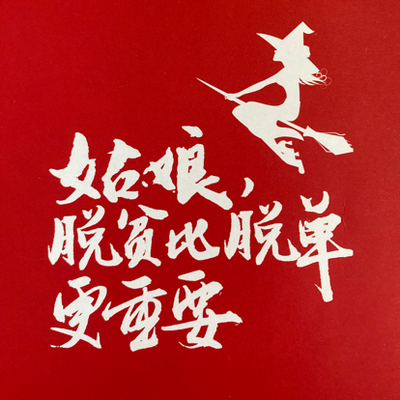 姑娘，
脱贫比脱单
更重要